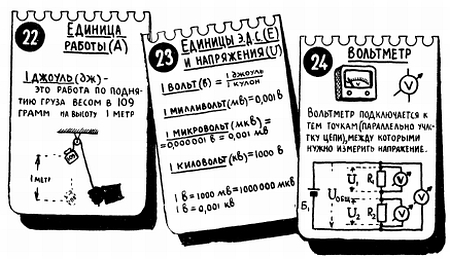 22
ЕДИНИЦА
РАБОТЫ(А)
1 ДЖОУЛЬ(ДЖ)-
ЭТО РАБОТА ПО ПОДНЯ-
ТИЮ ГРУЗА ВЕСОМ В 109
ГРАММ НА ВЫСОТУ 1 МЕТР
1 МЕТР
23
ЕДИНИЦЫ Э.Д.С.(Е)
И НАПРЯЖЕНИЯ(U)
1 ВОЛЬТ(В) = 1 ДЖОУЛЬ / 1 КУЛОН
1 МИЛЛИВОЛЬТ(МВ)=0,001В
1 МИКРОВОЛЬТ(МКВ)=
=0,000001 В = 0,001 МВ
1 КИЛОВОЛЬТ(КВ)=1000 В
1 В = 1000 МВ = 1000000 МКВ
1 В = 0,001 КВ
24
ВОЛЬТМЕТР
V
ВОЛЬТМЕТР ПОДКЛЮЧАЕТСЯ К
ТЕМ ТОЧКАМ(ПАРАЛЛЕЛЬНО УЧАСТ-
КУ ЦЕПИ), МЕЖДУ КОТОРЫМИ
НУЖНО ИЗМЕРИТЬ НАПРЯЖЕНИЕ.
U1 R1 V
Б1 UОБЩ V
U2 R2 V